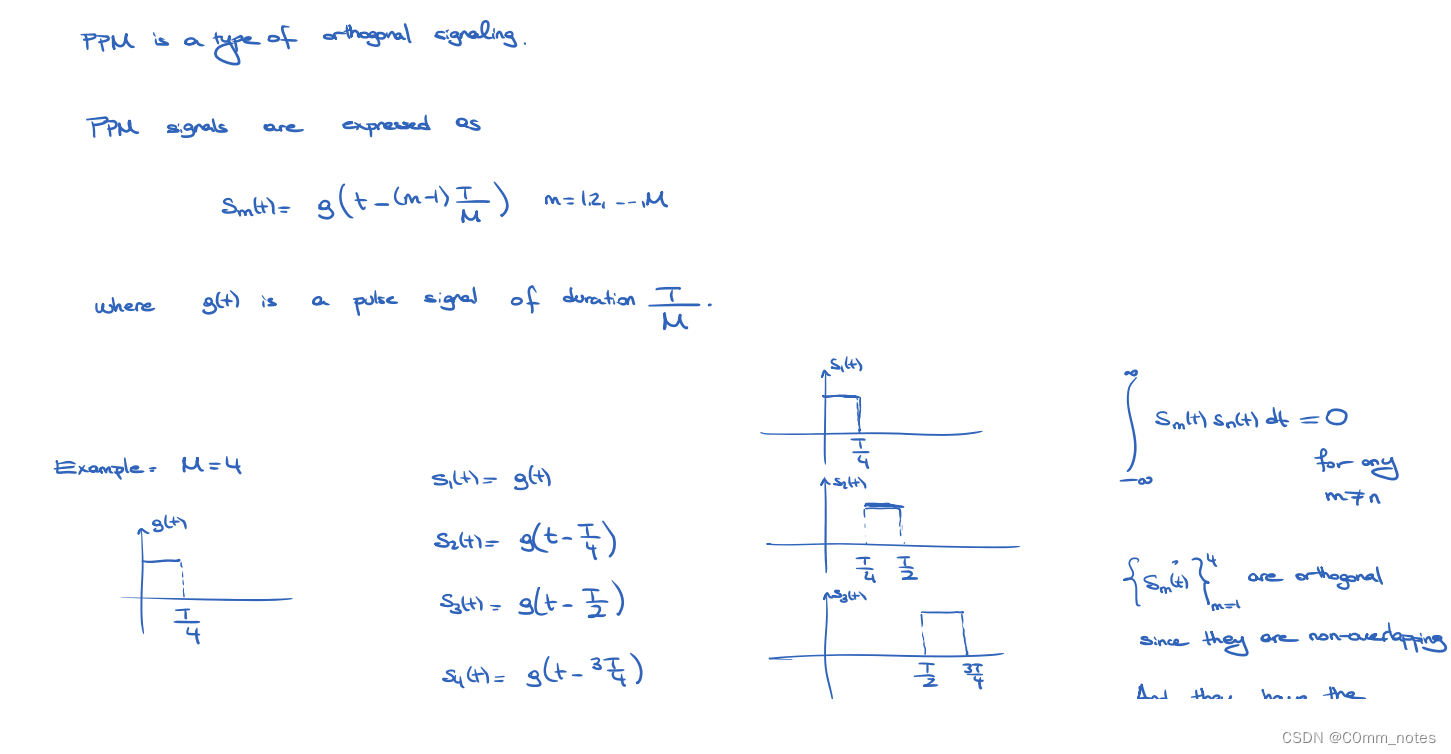 PPM is a type of orthogonal signaling.
PPM signals are expressed as
Sm(t)= g(t-(m-1) T/M) m=1,2, ---,M
where g(t) is a pulse signal of duration T/M.
Example: M=4
g(t)
T/4
S1(t)= g(t)
S2(t)= g(t-T/4)
S3(t)= g(t-T/2)
S4(t)= g(t-3T/4)
S1(t)
T/4
S2(t)
T/4 T/2
S3(t)
T/2 3T/4
∫_{-∞}^{∞} Sm(t) Sn(t) dt = 0
for any
m≠n
{Sm(t)}_{m=1}^{4} are orthogonal
since they are non-overlapping
And they have the
CSDN @C0mm_notes